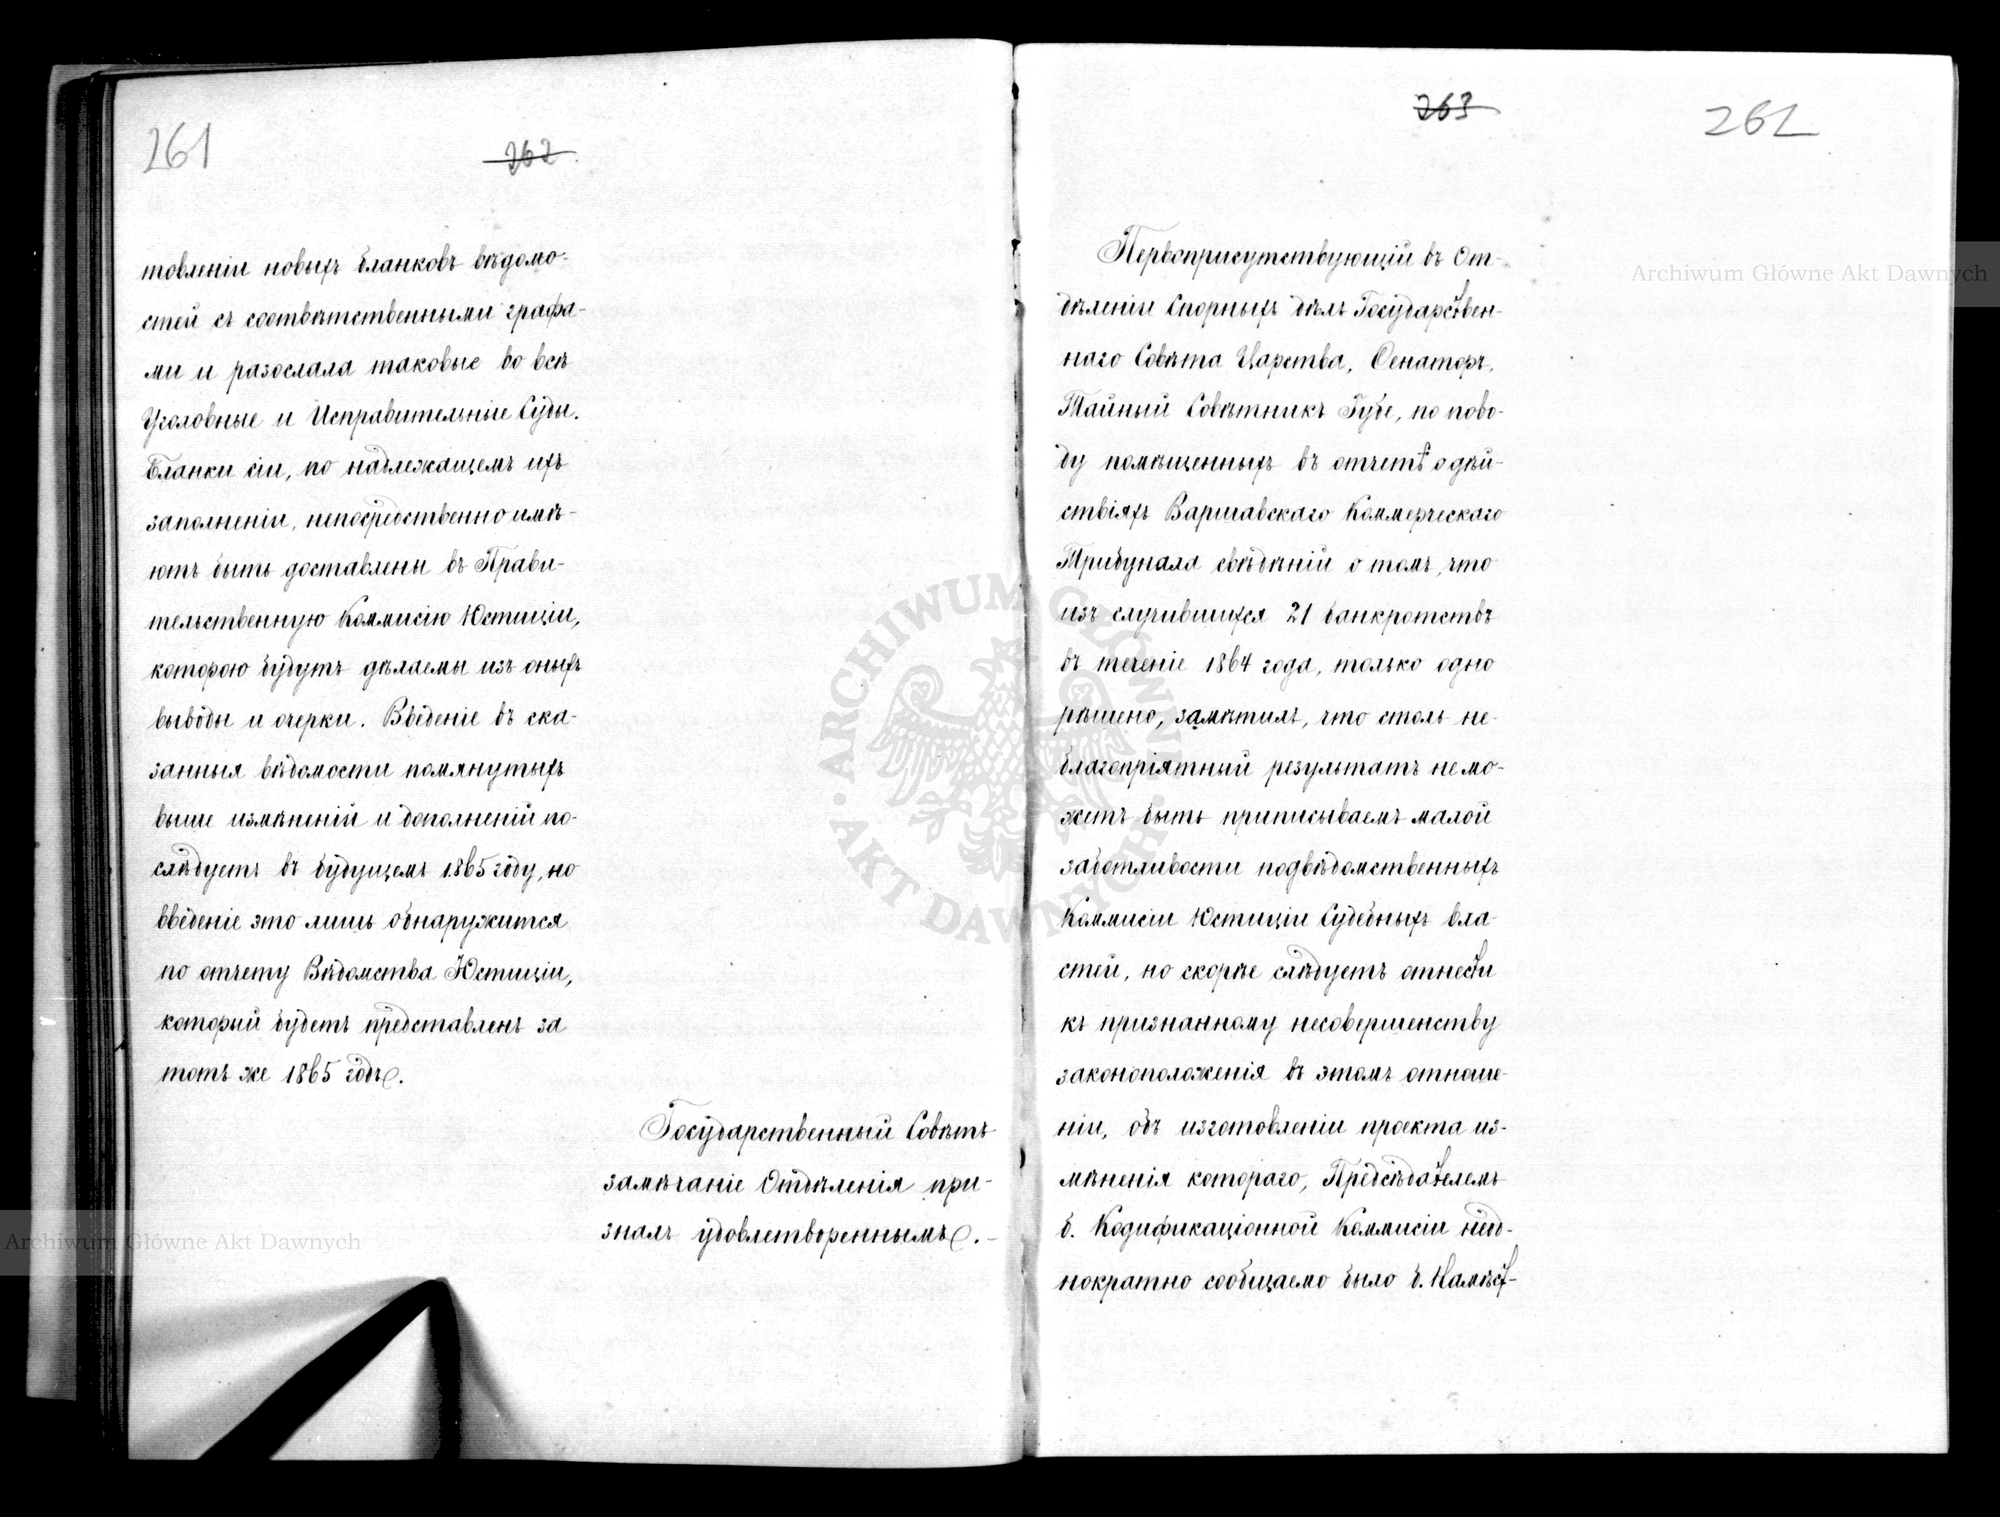 261
262
товленіи новыхъ бланковъ вѣдомо-
стей съ соотвѣтственными графа-
ми и разослала таковые во всѣ
Уголовные и Исправительные Суды.
Бланки сіи, по надлежащемъ ихъ
заполненіи, непосредственно имѣ-
ютъ быть доставлены въ Прави-
тельственную Коммисію Юстиціи,
которою будутъ дѣлаемы изъ оныхъ
выводы и очерки. Введеніе въ ска-
занныя вѣдомости помянутыхъ
выше измѣненій и дополненій по-
слѣдуетъ въ будущемъ 1865 году, но
введеніе это лишь обнаружится
по отчету Вѣдомства Юстиціи,
который будетъ представленъ за
тотъ же 1865 годъ.
Государственный Совѣтъ
замѣчаніе Отдѣленія при-
зналъ удовлетвореннымъ.
263
262
Первоприсутствующій въ От-
дѣленіи Спорныхъ дѣлъ Государствен-
наго Совѣта Царства, Сенаторъ,
Тайный Совѣтникъ Губе, по пово-
ду помѣщенныхъ въ отчетѣ о дѣй-
ствіяхъ Варшавскаго Коммерческаго
Трибунала свѣдѣній о томъ, что
изъ случившихся 21 банкротствъ
въ теченіе 1864 года, только одно
рѣшено, замѣтилъ, что столь не-
благопріятный результатъ не мо-
жетъ быть приписываемъ малой
заботливости подвѣдомственныхъ
Коммисіи Юстиціи Судебныхъ вла-
стей, но скорѣе слѣдуетъ отнести
къ признанному несовершенству
законоположенія въ этомъ отноше-
ніи, объ изготовленіи проекта из-
мѣненія котораго, Предсѣдателемъ
б. Кодификаціонной Коммисіи неод-
нократно сообщаемо было б. Намѣст-
Archiwum Główne Akt Dawnych
Archiwum Główne Akt Dawnych
ARCHIWUM GŁÓWNE AKT DAWNYCH